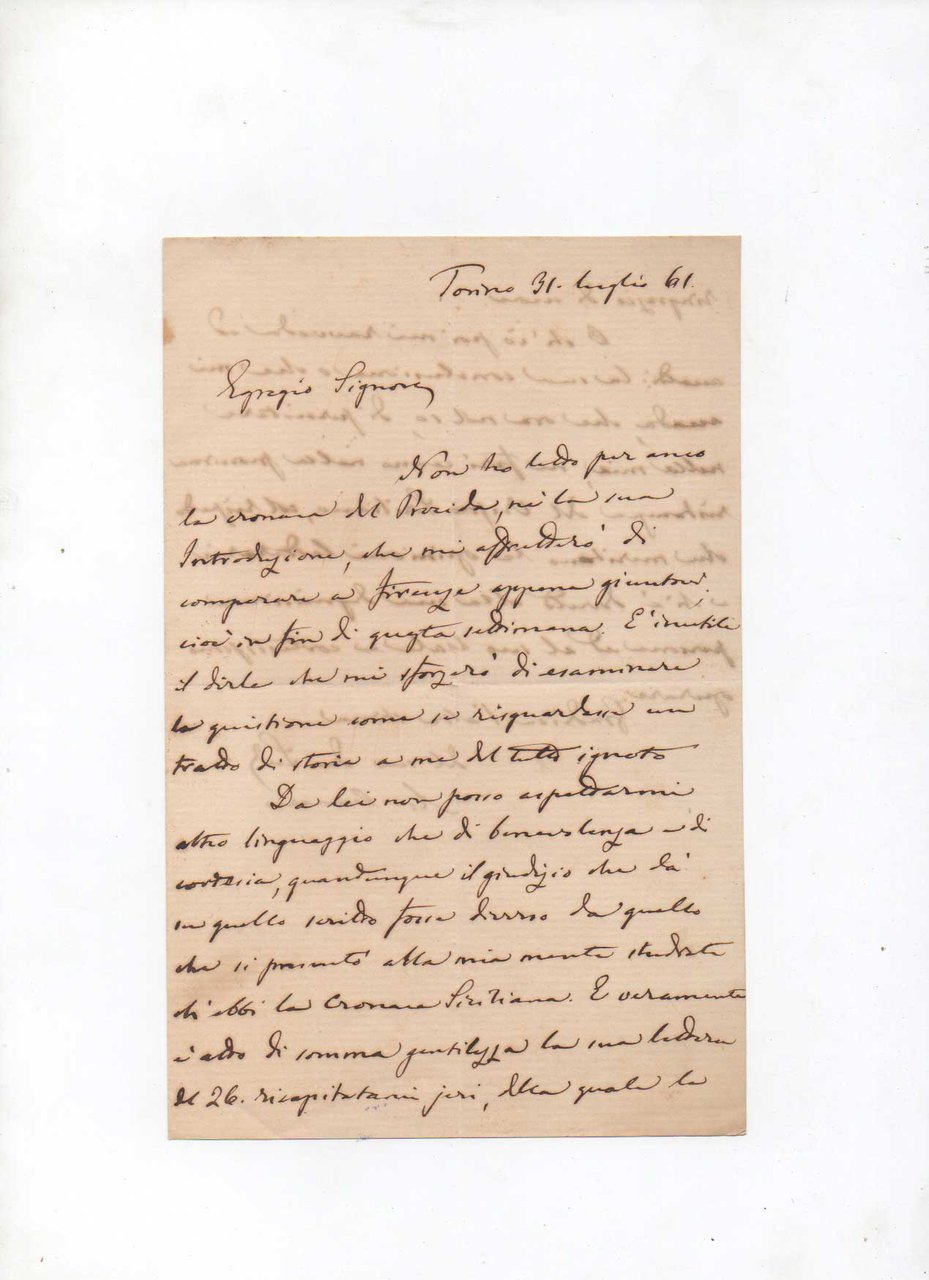 Torino 31. luglio 61.
Egregio Signore,
Non ho letto per anco
la cronaca del Procida, nè la sua
Introduzione, che mi affretterò di
comperare a Firenze appena giuntovi,
cioè in fin di questa settimana. È inutile
il dirle che mi sforzerò di esaminare
la quistione come se risguardasse un
tratto di storia a me del tutto ignoto
Da lei non posso aspettarmi
altro linguaggio che di benevolenza e di
cortesia, quantunque il giudizio che dà
su quello scritto fosse diverso da quello
che si presentò alla mia mente studiata
ch' ebbi la Cronaca Siciliana. E veramente
è atto di somma gentilezza la sua lettera
del 26. ricapitatami jeri, della quale la